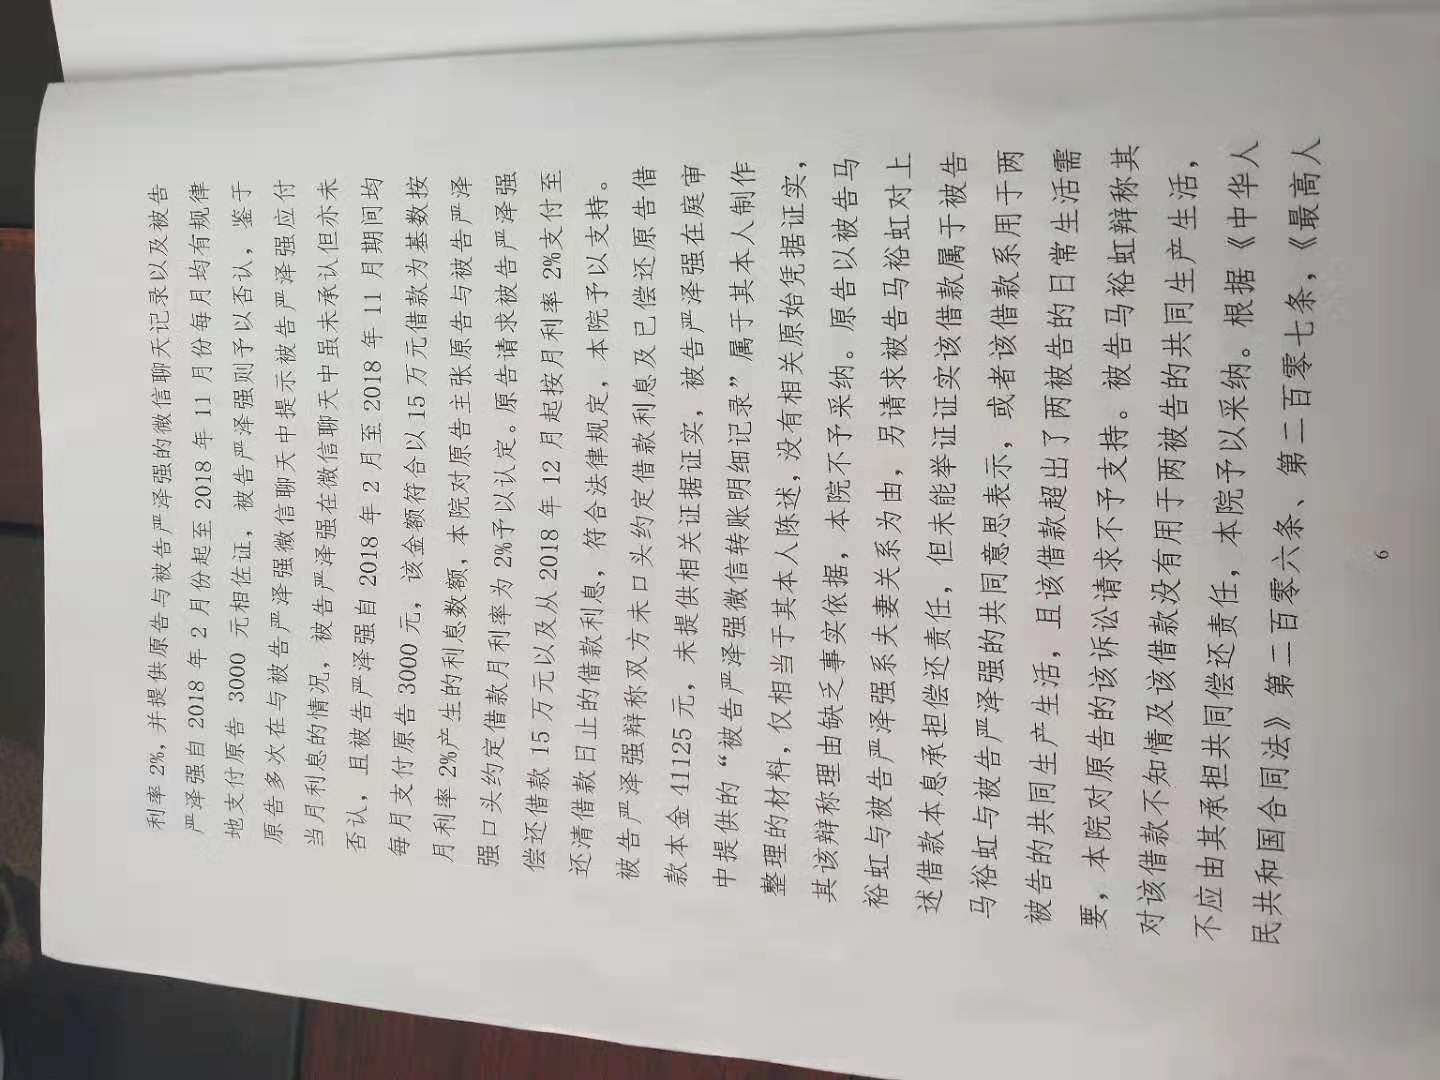 利率 2%，并提供原告与被告严泽强的微信聊天记录以及被告
严泽强自 2018 年 2 月份起至 2018 年 11 月份每月均有规律
地支付原告 3000 元相佐证，被告严泽强则予以否认，鉴于
原告多次在与被告严泽强微信聊天中提示被告严泽强应付
当月利息的情况，被告严泽强在微信聊天中虽未承认但亦未
否认，且被告严泽强自 2018 年 2 月至 2018 年 11 月期间均
每月支付原告 3000 元，该金额符合以 15 万元借款为基数按
月利率 2%产生的利息数额，本院对原告主张原告与被告严泽
强口头约定借款月利率为 2%予以认定。原告请求被告严泽强
偿还借款 15 万元以及从 2018 年 12 月起按月利率 2%支付至
还清借款日止的借款利息，符合法律规定，本院予以支持。
被告严泽强辩称双方未口头约定借款利息及已偿还原告借
款本金 41125 元，未提供相关证据证实，被告严泽强在庭审
中提供的“被告严泽强微信转账明细记录”属于其本人制作
整理的材料，仅相当于其本人陈述，没有相关原始凭据证实，
其该辩称理由缺乏事实依据，本院不予采纳。原告以被告马
裕虹与被告严泽强系夫妻关系为由，另请求被告马裕虹对上
述借款本息承担偿还责任，但未能举证证实该借款属于被告
马裕虹与被告严泽强的共同意思表示，或者该借款系用于两
被告的共同生产生活，且该借款超出了两被告的日常生活需
要，本院对原告的该诉讼请求不予支持。被告马裕虹辩称其
对该借款不知情及该借款没有用于两被告的共同生产生活，
不应由其承担共同偿还责任，本院予以采纳。根据《中华人
民共和国合同法》第二百零六条、第二百零七条，《最高人
6